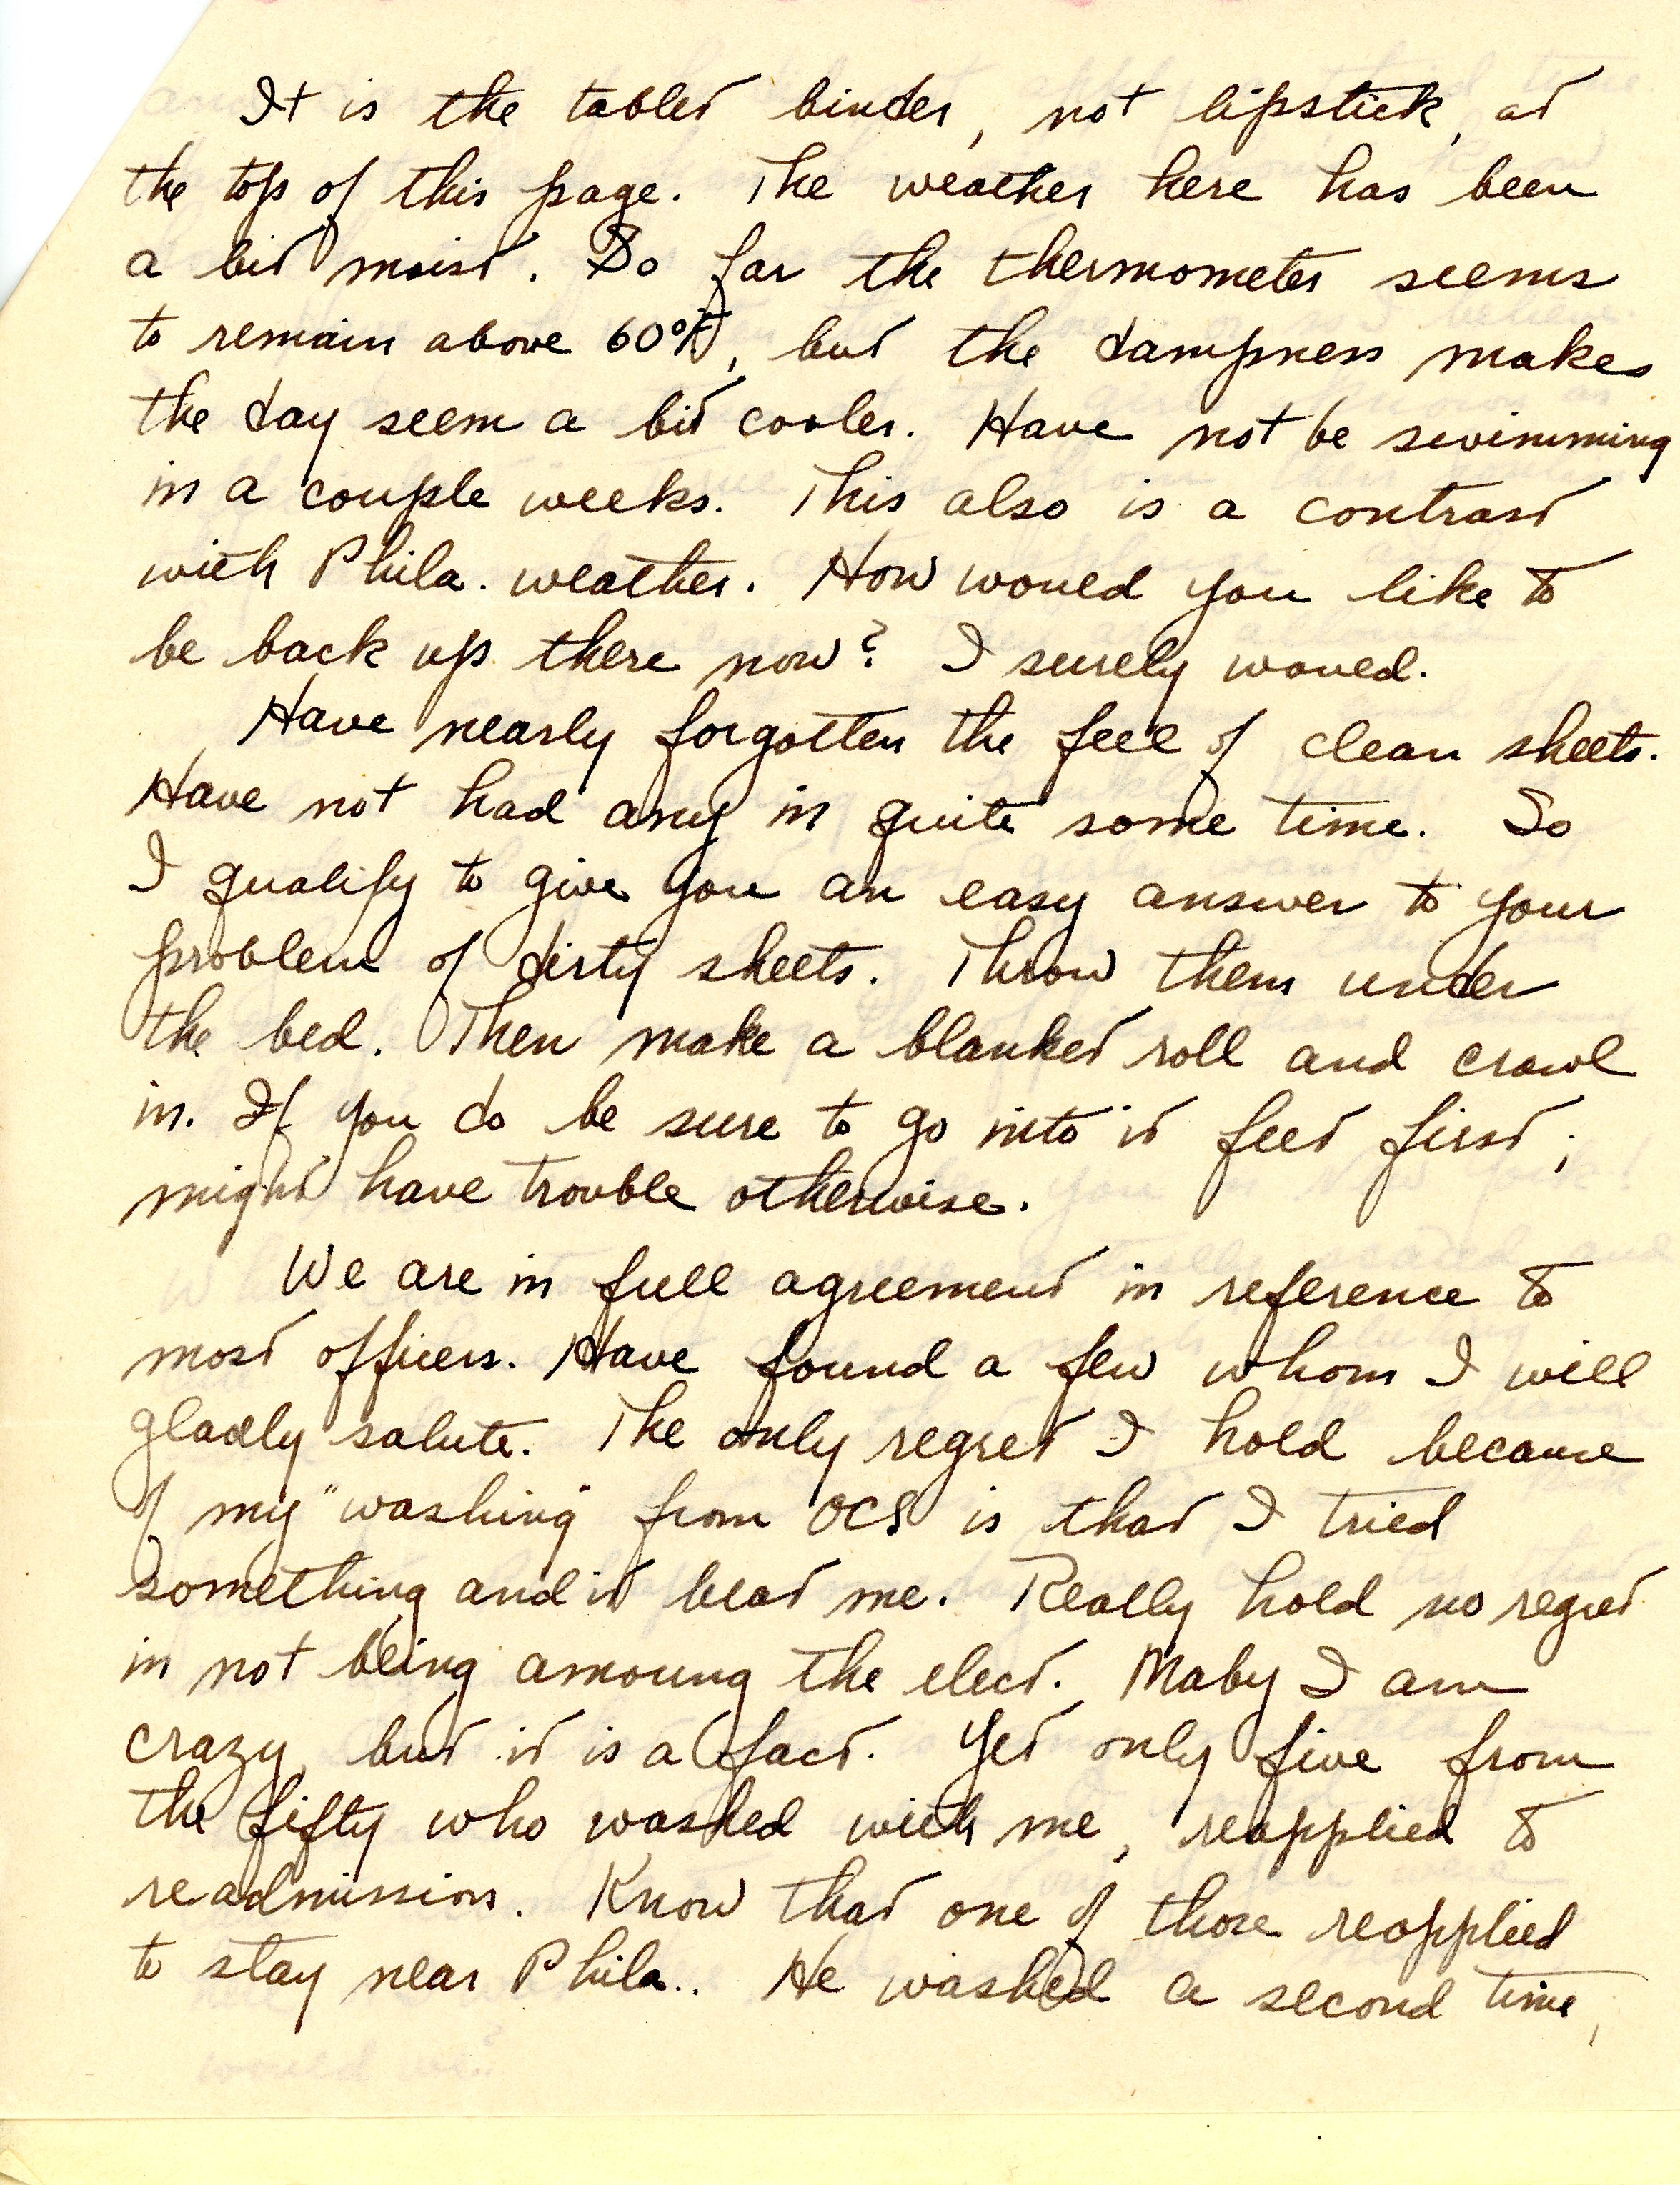 It is the tablet binder, not lipstick, at
the top of this page. The weather here has been
a bit moist. So far the thermometer seems
to remain above 60°F, but the dampness makes
the day seem a bit cooler. Have not be swimming
in a couple weeks. This also is a contrast
with Phila. weather. How would you like to
be back up there now? I surely would.
Have nearly forgotten the feel of clean sheets.
Have not had any in quite some time. So
I qualify to give you an easy answer to your
problem of dirty sheets. Throw them under
the bed. Then make a blanket roll and crawl
in. If you do be sure to go into it feet first;
might have trouble otherwise.
We are in full agreement in reference to
most officers. Have found a few whom I will
gladly salute. The only regret I hold because
of my "washing" from OCS is that I tried
something and it beat me. Really hold no regret
in not being amoung the elect. Maby I am
crazy, but it is a fact. Yet only five from
the fifty who washed with me, reapplied to
readmission. Know that one of those reapplied
to stay near Phila.. He washed a second time,